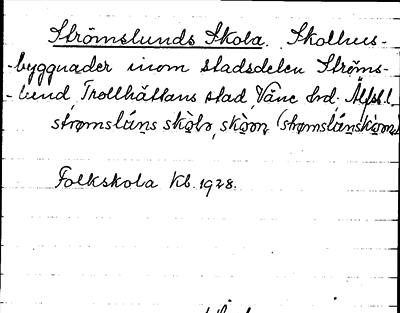 Strömslunds Skola. Skolhus-
-byggnader inom stadsdelen Ströms-
-lund, Trollhättans stad, Väne hd. Älfsb. l.
strømsláns skòlɒ, skòɒn (strømslánskòɒn)
Folkskola Kb. 1928.